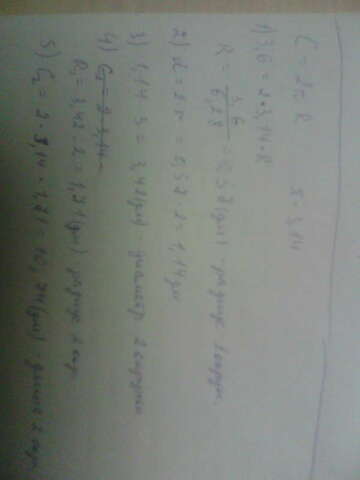 C = 2π R     π = 3,14
1) 3,6 = 2 · 3,14 · R
R = 3,6 / 6,28 = 0,57 (дм) - радиус 1 окружн.
2) d = 2 r = 0,57 · 2 = 1,14 дм
3) 1,14 · 3 = 3,42 (дм) - диаметр 2 окружн
4) C₂ = 2 · 3,14
R₂ = 3,42 : 2 = 1,71 (дм) радиус 2 окр.
5) C₂ = 2 · 3,14 · 1,71 = 10,74 (дм) - длина 2 окр.